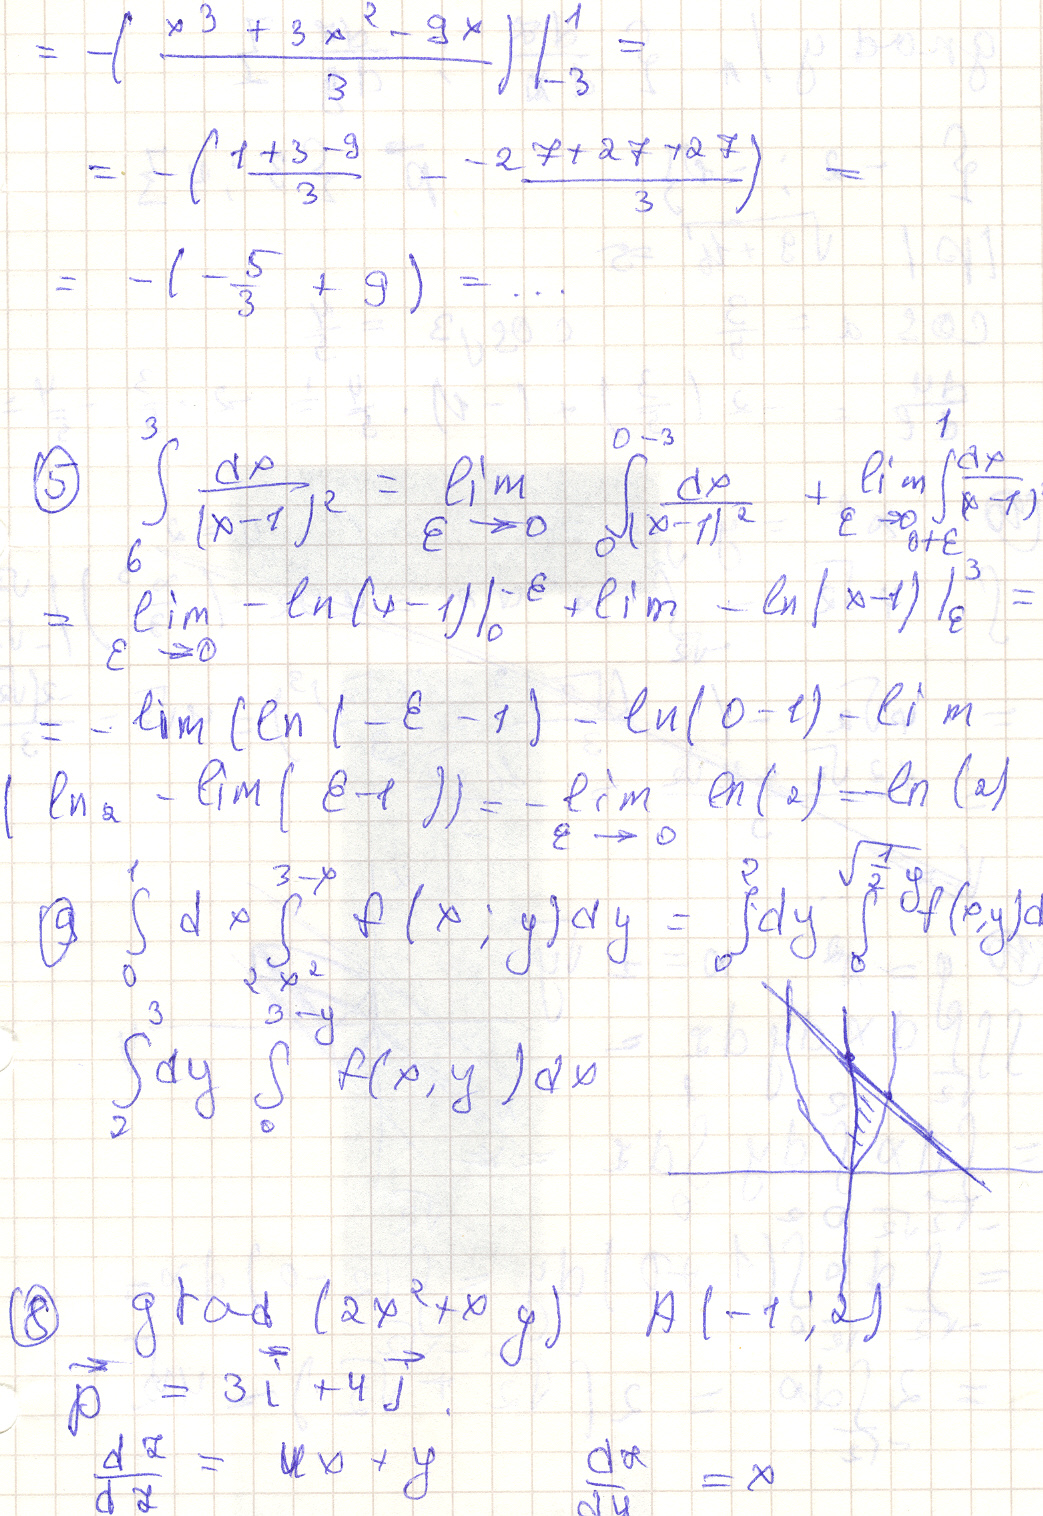 = -( (x³ + 3x² - 9x)/3 ) |₋₃¹ =
= -( (1+3-9)/3 - (-27+27+27)/3 ) =
= -( -5/3 + 9 ) = ...
⑤ ∫₆³ dx/(x-1)² = lim ε→0 ∫₀^(0-3) dx/(x-1)² + lim ε→0 ∫_(0+ε)^1 dx/(x-1)
= lim ε→0 - ln(x-1)|₀^(-ε) + lim - ln(x-1)|_ε^3 =
= - lim (ln(-ε-1) - ln(0-1) - lim
( ln₂ - lim( ε-1 )) = - lim ε→0 ln(2) = -ln(2)
⑨ ∫₀¹ dx ∫_(2x²)^(3-x) f(x; y)dy = ∫₀² dy ∫₀^(√(1/2 y)) f(x,y)d
∫₂³ dy ∫₀^(3-y) f(x,y)dx
⑧ grad (2x²+xy) A(-1; 2)
p⃗ = 3i⃗ + 4j⃗.
dz/dz = 4x + y dz/dy = x